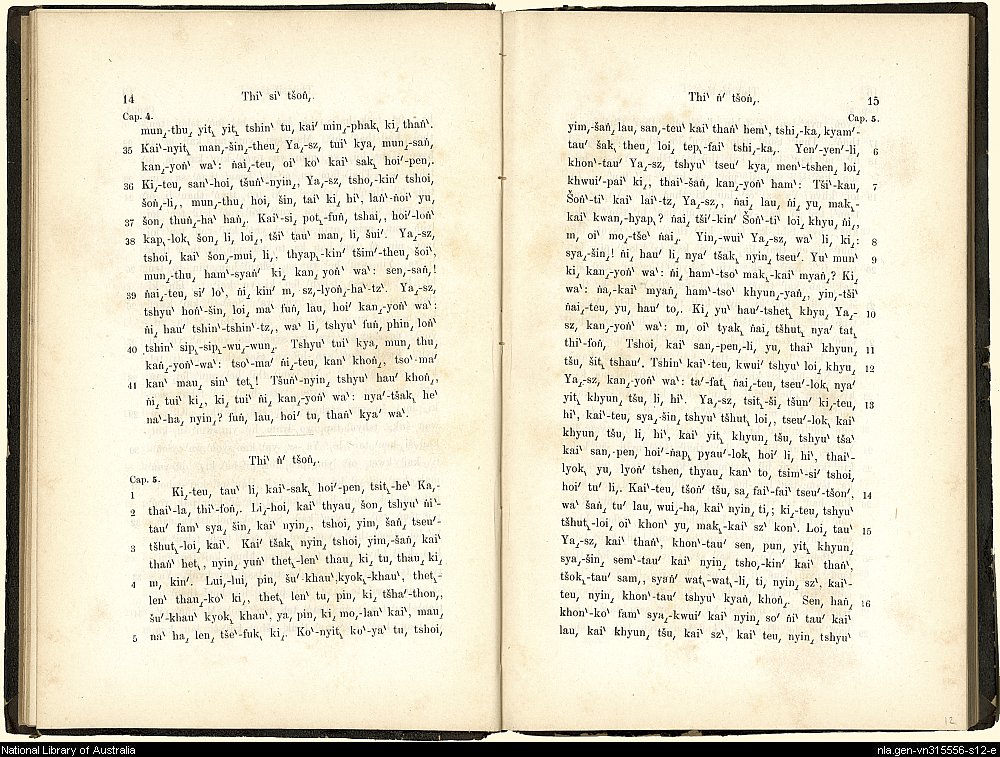 14 Thiˋ siˋ tšoṅ͵.
Cap. 4.
mun͵-thu͵ yit˛ yit˛ tshinˋ tu, kaiˊ min͵-phak˛ ki͵ thaṅˋ.
35 Kaiˋ-nyit˛ man͵-šin͵-theu͵ Ya͵-sz, tuiˊ kya, mun͵-saṅ,
kan͵-yoṅˋ waˋ: ṅai͵-teu, oiˋ koˋ kaiˋ sak˛ hoiˊ-pen͵.
36 Ki͵-teu, sanˋ-hoi, tšuṅˋ-nyin͵, Ya͵-sz, tsho͵-kinˊ tshoi,
šoṅ͵-li͵, mun͵-thu, hoi, šin, taiˋ ki, hiˋ, laṅˋ-ṅoiˋ yu,
37 šon, thuṅ͵-ha haṅ͵. Kaiˋ-si͵ pot˛-fuṅ, tshai͵, hoiˊ-loṅˋ
38 kap˛-lok˛ šon͵ li, loi͵, tšiˋ tauˋ man, li, šuiˊ. Ya͵-sz,
tshoi, kaiˋ šon͵-mui, li͵, thyap˛-kinˊ tšimˊ-theu, šoiˋ,
mun͵-thu, hamˋ-syaṅˊ ki͵ kan͵ yoṅˋ waˋ: sen͵-saṅ,!
39 ṅai͵-teu, siˊ loˋ, ṅi͵ kinˊ m͵ sz͵-lyoṅ͵-haˋ-tzˋ. Ya͵-sz,
tshyuˋ hoṅˋ-šin, loi͵ maˊ fuṅ, lau, hoiˊ kan͵-yoṅˋ waˋ:
ṅi͵ hauˊ tshinˋ-tshinˋ-tz͵, waˋ li, tshyuˋ fuṅ, phin, loṅˋ
40 tshinˋ sip˛-sip˛-wu͵-wun͵. Tshyuˋ tuiˋ kya, mun, thu
kaṅ͵-yoṅˋ-waˋ: tsoˋ-maˊ ṅi͵-teu, kanˋ khoṅ͵, tsoˋ maˊ
41 kanˋ mau, sinˋ tet˛! Tšuṅˋ-nyin, tshyuˋ hauˊ khoṅ͵,
ṅi͵ tuiˋ ki͵, ki͵ tuiˋ ṅi͵ kan͵-yoṅˋ waˋ: nyaˊ-tšak˛ heˋ
naˋ-ha, nyin͵? fuṅ, lau, hoiˊ tu, thaṅˋ kyaˊ waˊ.
Thiˋ ṅˊ tšoṅ͵.
Cap. 5.
1 Ki͵-teu, tauˋ li, kaiˋ-sak˛ hoiˊ-pen, tsit˛-he Ka͵-
2 thaiˋ-la, thiˋ-foṅ͵. Li͵-hoi, kaiˋ thyau, šon͵ tshyuˋ ṅiˋ-
tauˊ famˋ sya͵ šin, kaiˋ nyin͵, tshoi, yim, šaṅ͵ tseuˊ-
3 tšhut˛-loi͵ kaiˋ. Kaiˊ tšak˛ nyin͵ tshoi, yim͵-šaṅ͵ kaiˋ
thaṅˋ het˛, nyin͵ yuṅˋ thet˛-lenˋ thau͵ ki͵ tu, thau͵ ki͵
4 m, kinˊ. Lui͵-lui, pin, šuˊ-khauˋ͵kyok˛-khauˋ, thet˛-
lenˋ thau͵-koˋ ki͵, thet˛ lenˋ tu, pin, ki͵ tšhaˊ-thon͵,
šuˊ-khauˋ kyok˛ khauˋ, ya, pin, ki, mo͵-lauˋ kaiˋ, mau͵
5 naˋ ha͵ len͵ tšeˋ-fuk˛ ki͵. Koˋ-nyit˛ koˋ-yaˋ tu, tshoi,
Thiˋ ṅˊ tšoṅ͵. 15
Cap. 5.
yim͵-šaṅ͵ lau, san͵-teuˋ kaiˋ thaṅˋ hemˋ, tshi͵-ka, kyamˊ-
tauˊ šak˛ theu͵ loi͵ tep˛-faiˋ tshi͵-ka͵. Yenˊ-yenˊ-li, 6
khonˋ-tauˊ Ya͵-sz, tshyuˋ tseuˊ kya, menˋ-tshen͵ loi͵
khwuiˊ-paiˋ ki͵, thaiˋ-šaṅ, kan͵-yoṅˋ hamˋ: Tšiˋ-kau, 7
Šoṅˋ-tiˋ kaiˋ laiˋ-tz, Ya͵-sz͵, ṅai͵ lau, ṅi͵ yu, mak˛-
kaiˋ kwan͵-hyap˛? ṅai͵ tšiˊ-kinˊ Šoṅˋ-tiˋ loi͵ khyu, ṅi͵,
m, oiˋ mo͵-tšeˋ ṅai͵. Yin͵-wuiˋ Ya͵-sz, waˋ li, ki͵: 8
sya͵-šin͵! ṅi͵ hauˊ li, nyaˊ tšak˛ nyin͵ tseuˊ. Yuˋ munˋ 9
ki, kan͵-yoṅˋ waˋ: ṅi͵ hamˋ-tsoˋ mak˛-kaiˋ myaṅ͵? Ki͵
waˋ: ṅa͵-kaiˋ myaṅ͵ hamˋ-tsoˋ khyun͵-yaṅ͵, yin͵-tšiˋ
ṅai͵-teu, yu, hauˊ to͵. Ki͵ yuˋ hauˊ-tshet˛ khyu, Ya͵- 10
sz, kan͵-yoṅˋ waˋ: m, oiˋ tyak˛ ṅai͵ tšhut˛ nyaˊ tat˛
thiˋ-foṅ͵ Tshoi, kaiˋ san͵-pen͵-li, yu, thaiˋ khyun, 11
tšu, šit˛ tshauˊ. Tshinˋ kaiˋ-teu, kwuiˊ tshyuˋ loi͵ khyu͵ 12
Ya͵-sz, kan͵-yoṅˋ waˋ: taˊ-fat˛ ṅai͵-teu, tseuˊ-lok˛ nyaˊ
yit˛ khyun͵ tšu, li, hiˋ. Ya͵-sz, tsit˛-ši͵ tšunˊ ki͵-teu, 13
hiˋ, kaiˋ-teu, sya͵-šin͵ tshyuˋ tšhut˛ loi͵, tseuˊ-lok˛ kaiˋ
khyun, tšu, li, hiˋ, kaiˋ yit˛ khyun͵ tšu, tshyuˋ tšaˋ
kaiˋ san͵-pen, hoiˊ-ṅap˛ pyauˊ-lok˛ hoiˊ li, hiˋ, thaiˋ-
lyok˛ yu, lyoṅˊ tshen, thyau, kanˋ to, tsimˋ-siˊ tshoi,
hoiˊ tuˊ li͵. Kaiˋ-teu, tšoṅˊ tšu, sa͵ faiˋ-faiˋ tseuˊ-tšonˊ, 14
waˋ šaṅ, tuˊ lau, wui͵-ha, kaiˋ nyin, ti͵; ki͵-teu, tshyuˋ
tšhut˛-loi͵ oiˋ khonˋ yu, mak˛-kaiˋ szˋ konˋ. Loi͵ tauˋ 15
Ya͵-sz, kaiˋ thaṅˋ, khonˋ-tauˊ sen, pun, yit˛ khyun,
sya͵-šin͵ semˋ-tauˊ kaiˋ nyin͵ tsho͵-kinˊ kaiˋ thaṅˋ,
tšok˛-tauˊ sam͵, syaṅˊ watˋ-watˋ-li, ti, nyin͵ szˋ. kaiˋ-
teu, nyin͵ khonˋ-tauˊ tshyuˋ kyaṅ, khoṅ͵. Sen, haṅ͵ 16
khonˋ-koˋ famˋ sya͵-kwuiˊ kaiˋ nyin͵ soˊ ṅiˋ tauˊ kaiˋ
lau, kaiˋ khyun͵ tšu, kaiˋ szˋ, kaiˋ teu, nyin͵ tshyuˋ
12
National Library of Australia
nla.gen-vn315556-s12-e